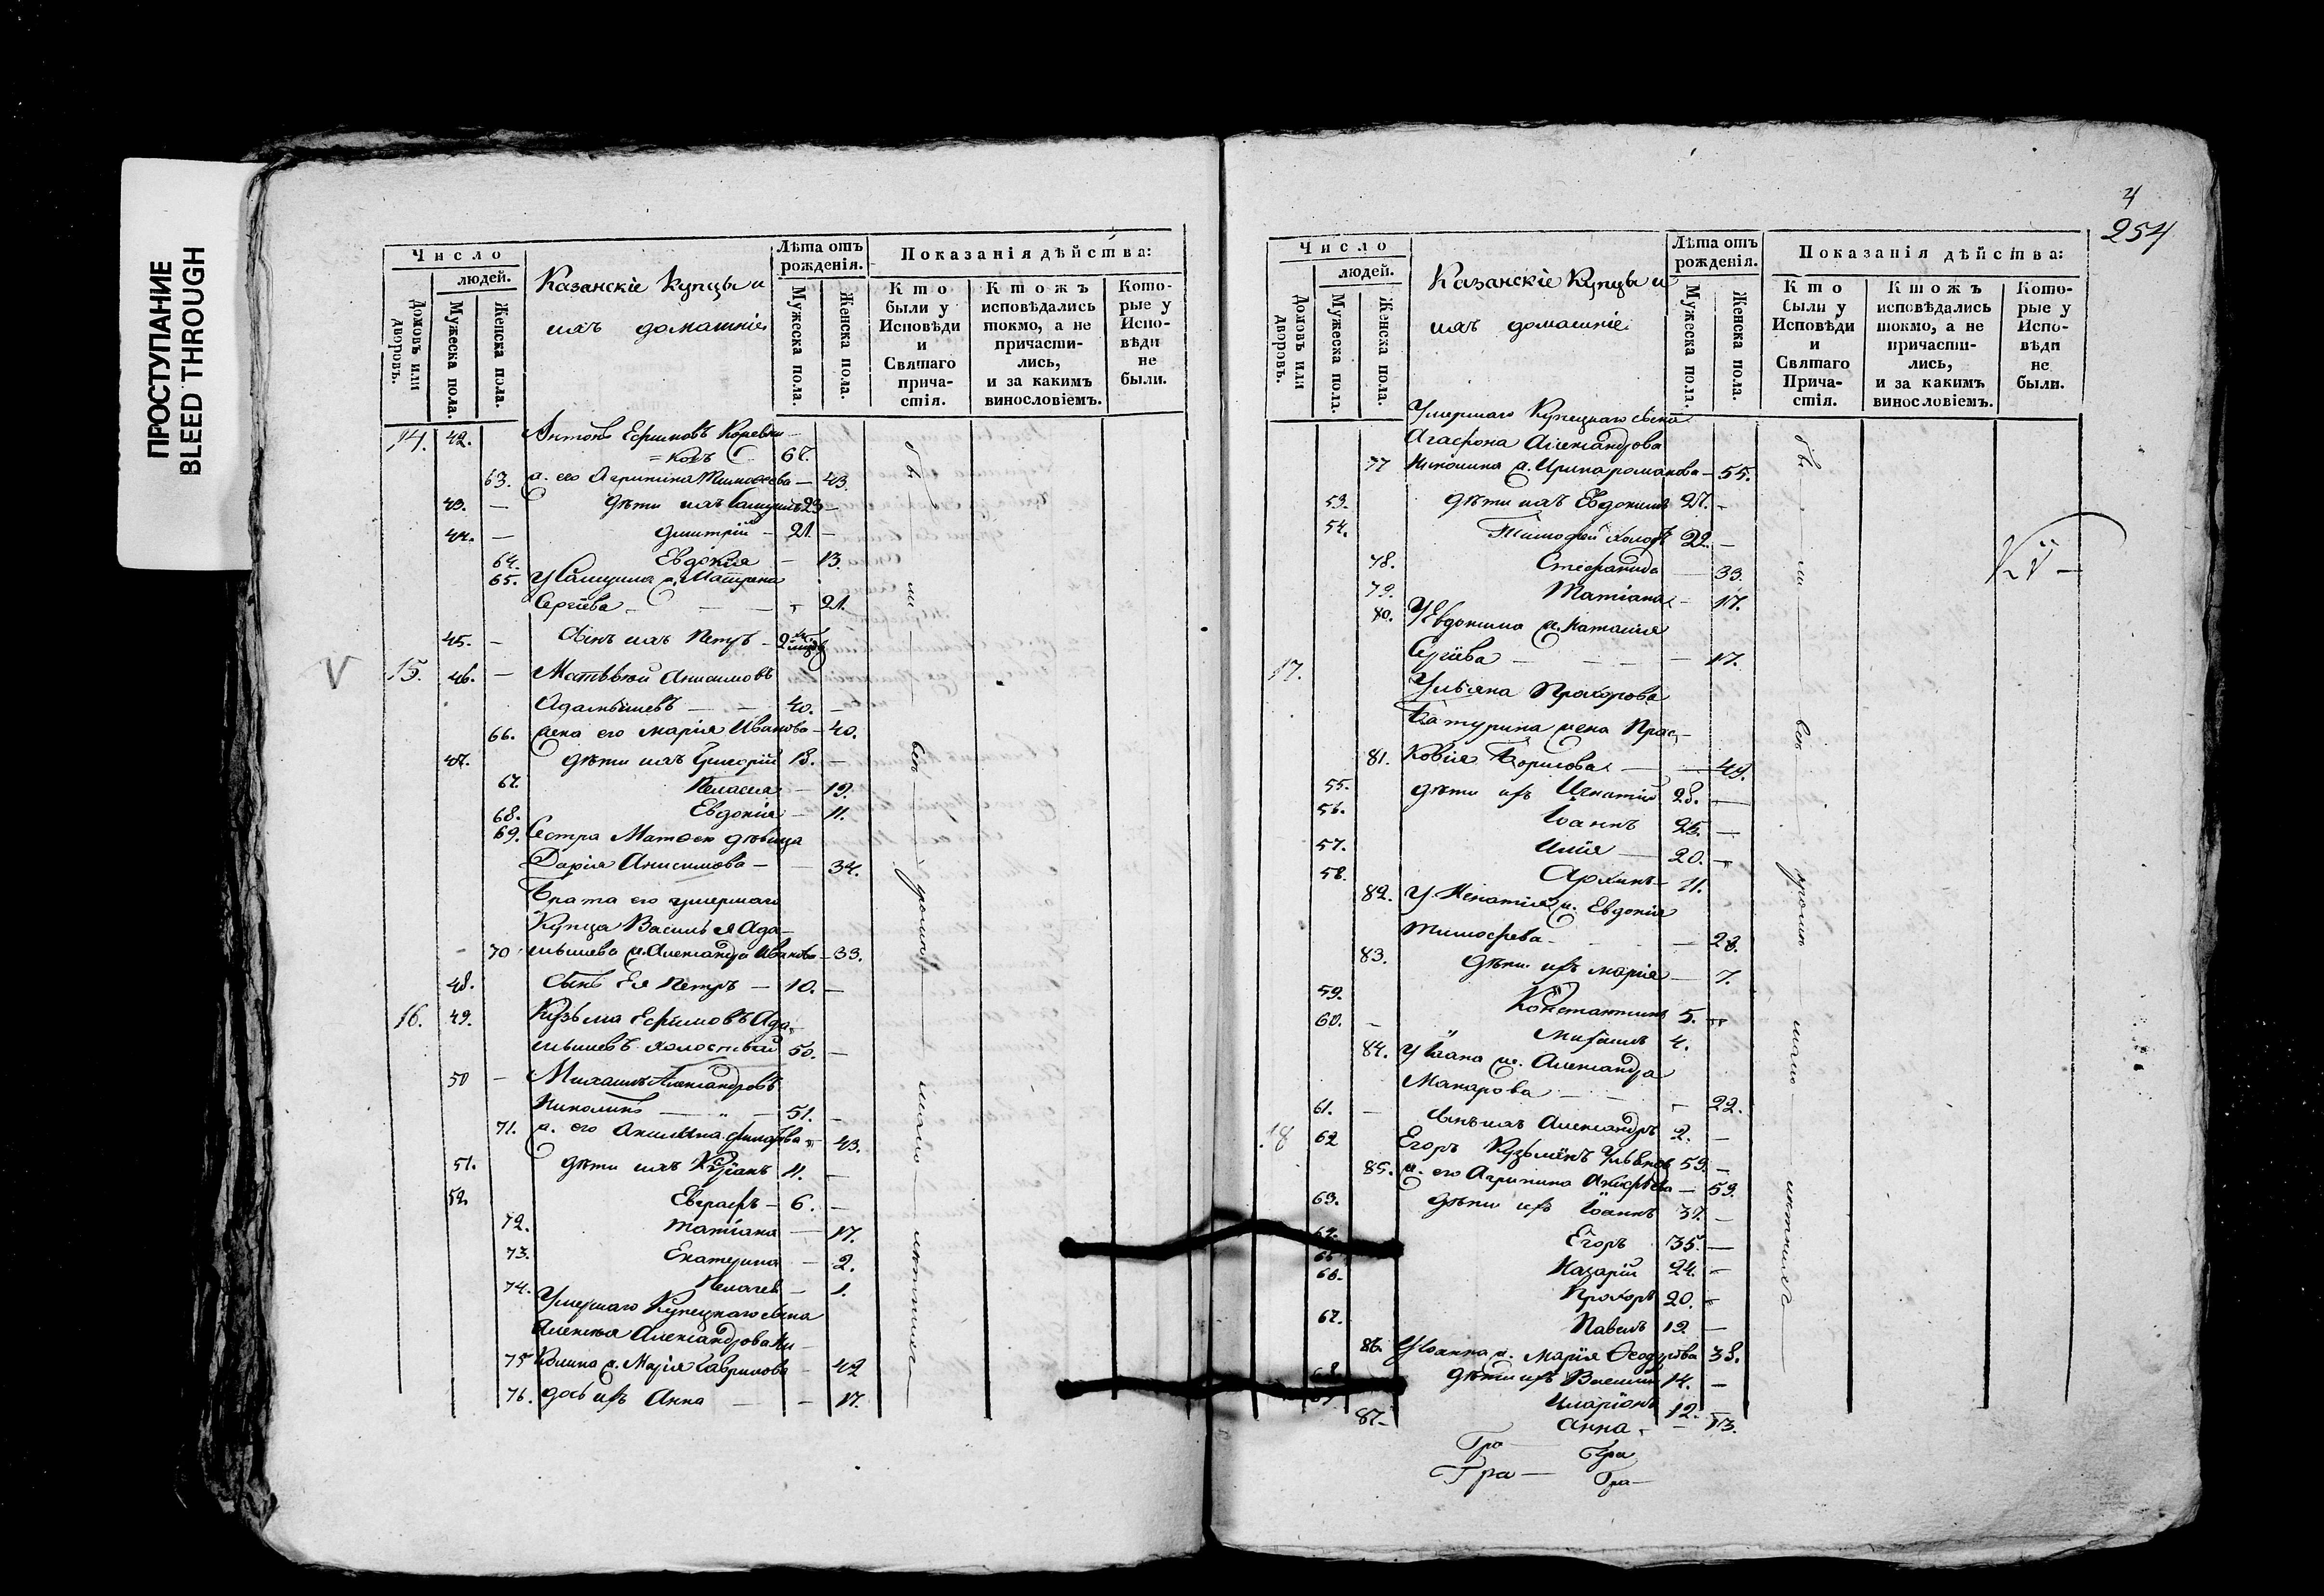 ПРОСТУПАНИЕ
BLEED THROUGH
Число
людей.
Домовъ или дворовъ.
Мужеска пола.
Женска пола.
Казанскіе Купцы и
ихъ домашніе
Лѣта отъ рожденія.
Мужеска пола.
Женска пола.
Показанія дѣйства:
Кто были у Исповѣди и Святаго причастія.
Ктожъ исповѣдались токмо, а не причастились, и за какимъ винословіемъ.
Которые у Исповѣди не были.
14. 42. Антонъ Ефимовъ Коревни-
=ковъ 67.
63. ж. его Агрипина Тимофеева — 43.
43. — дѣти ихъ 23 —
44. — Дмитрій — 21. —
64. Евдокія — 13.
65. ж. Матрена
Сергіева — 21.
45. — Сынъ ихъ Петръ —
V 15. 46. — Матѳвей Анисимовъ
Адамышевъ — 40. —
66. жена его Марія Иванова — 40.
47. дѣти ихъ Григорій 13. —
67. Пелагея — 19.
68. Евдокія — 11.
69. Сестра Матвея дѣвица
Дарія Анисимова — 34.
Брата его умершаго
Купца Василья Ада-
70 мышева ж. Александра Иванова — 33.
48. Сынъ Ея Петръ — 10. —
16. 49. Кузьма Ефимовъ Ада-
мышевъ холостый 50. —
50 — Михаилъ Александровъ
Николинъ — 51. —
71. ж. его Акилина — 43.
51. дѣти ихъ 11. —
52 Евграфъ — 6. —
72. Татіана — 17.
73. Екатерина — 2.
74. — 1.
Умершаго Купецкаго сына
Алексея Александрова Ни-
75 колина ж. Марія Гаврилова — 42
76. дочь ихъ Анна — 17.
бы — ли — всѣ — — мало — лѣтнихъ
4
254
Число
людей.
Домовъ или дворовъ.
Мужеска пола.
Женска пола.
Казанскіе Купцы и
ихъ домашніе
Лѣта отъ рожденія.
Мужеска пола.
Женска пола.
Показанія дѣйства:
Кто были у Исповѣди и Святаго Причастія.
Ктожъ исповѣдались токмо, а не причастились, и за какимъ винословіемъ.
Которые у Исповѣди не были.
Умершаго Купецкаго сына
Агафона Александрова
77 Николина ж. Ирина Романова — 55.
53. дѣти ихъ Евдокимъ 27. —
54. Тимофей холос 22. —
78. Стефанида — 33.
79. Татіана — 17.
80. У Евдокима ж. Наталія
Сергіева — 17.
17. Ульяна Прохорова
Батурина жена Прас-
81. ковія Борисова — 49.
55. дѣти ихъ Игнатій 28. —
56. Іоаннъ 25. —
57. Илія — 20. —
58. Архипъ — 11.
82. У Игнатія ж. Евдокія
Тимофеева — 28.
83. дѣти ихъ Марія — 7.
59. Константинъ 5. —
60. — Михаилъ 4.
84. У Іоана ж. Александра
Макарова — 22.
61. — сынъ ихъ Александръ 2. —
18 62 Егоръ Кузьминъ 59. —
85. ж. его Агрипина — 59.
63. дѣти ихъ Іоаннъ 37. —
64. Егоръ 35. —
65 Назарій 24. —
66. Прохоръ 20. —
67. Павелъ 19 —
86. У Іоанна ж. Марія Ѳеодорова 38.
68 дѣти ихъ Василій 14. —
69 Иларіонъ 12. —
87. Анна — 13.
бы — ли — всѣ — кромѣ — мало — лѣтнихъ
Гра Гра
Гра — Гра —